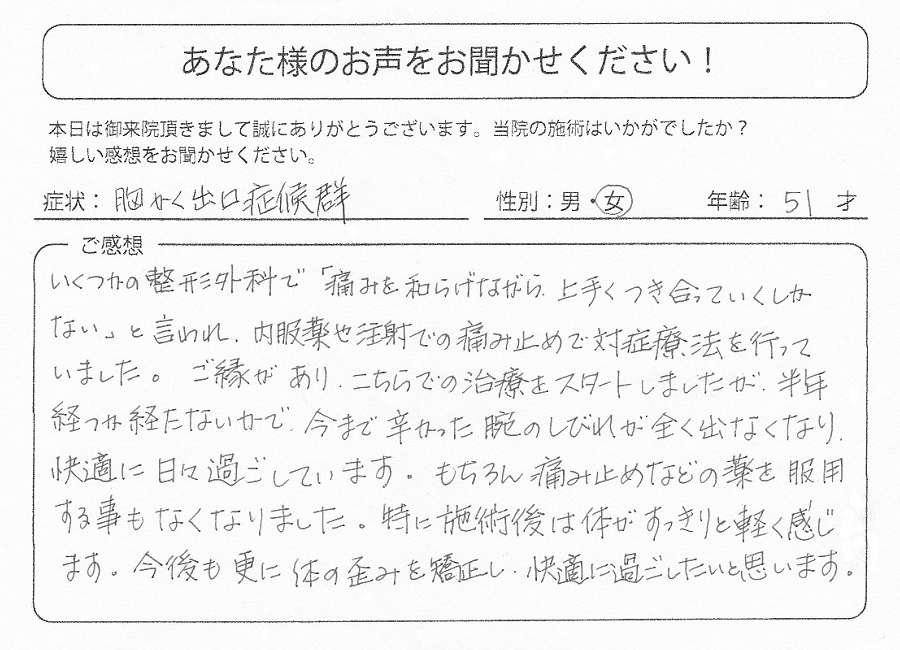 あなた様のお声をお聞かせください！
本日は御来院頂きまして誠にありがとうございます。当院の施術はいかがでしたか？
嬉しい感想をお聞かせください。
症状： 胸かく出口症候群 性別：男・女 年齢： 51 才
ご感想
いくつかの整形外科で「痛みを和らげながら、上手くつき合っていくしか
ない」と言われ、内服薬や注射での痛み止めで対症療法を行って
いました。ご縁があり、こちらでの治療をスタートしましたが、半年
経つか経たないかで、今まで辛かった腕のしびれが全く出なくなり、
快適に日々過ごしています。もちろん痛み止めなどの薬を服用
する事もなくなりました。特に施術後は体がすっきりと軽く感じ
ます。今後も更に体の歪みを矯正し、快適に過ごしたいと思います。